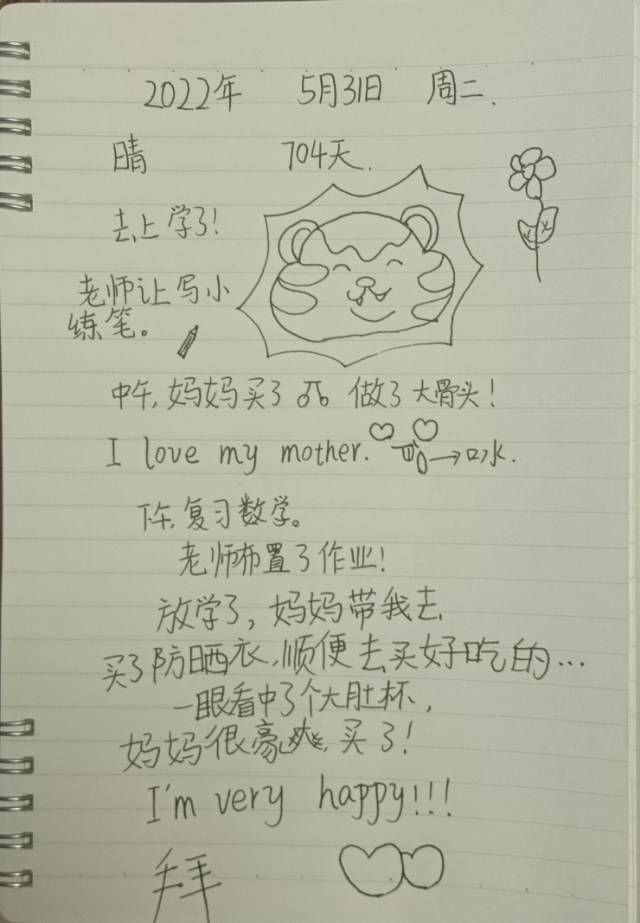 2022年 5月31日 周二.
晴 704天.
去上学了!
老师让写小
练笔。
中午,妈妈买了 做了大骨头!
I love my mother. →口水.
下午,复习数学。
老师布置了作业!
放学了,妈妈带我去
买了防晒衣,顺便去买好吃的…
一眼看中了个大肚杯,
妈妈很豪爽,买了!
I'm very happy!!!
拜